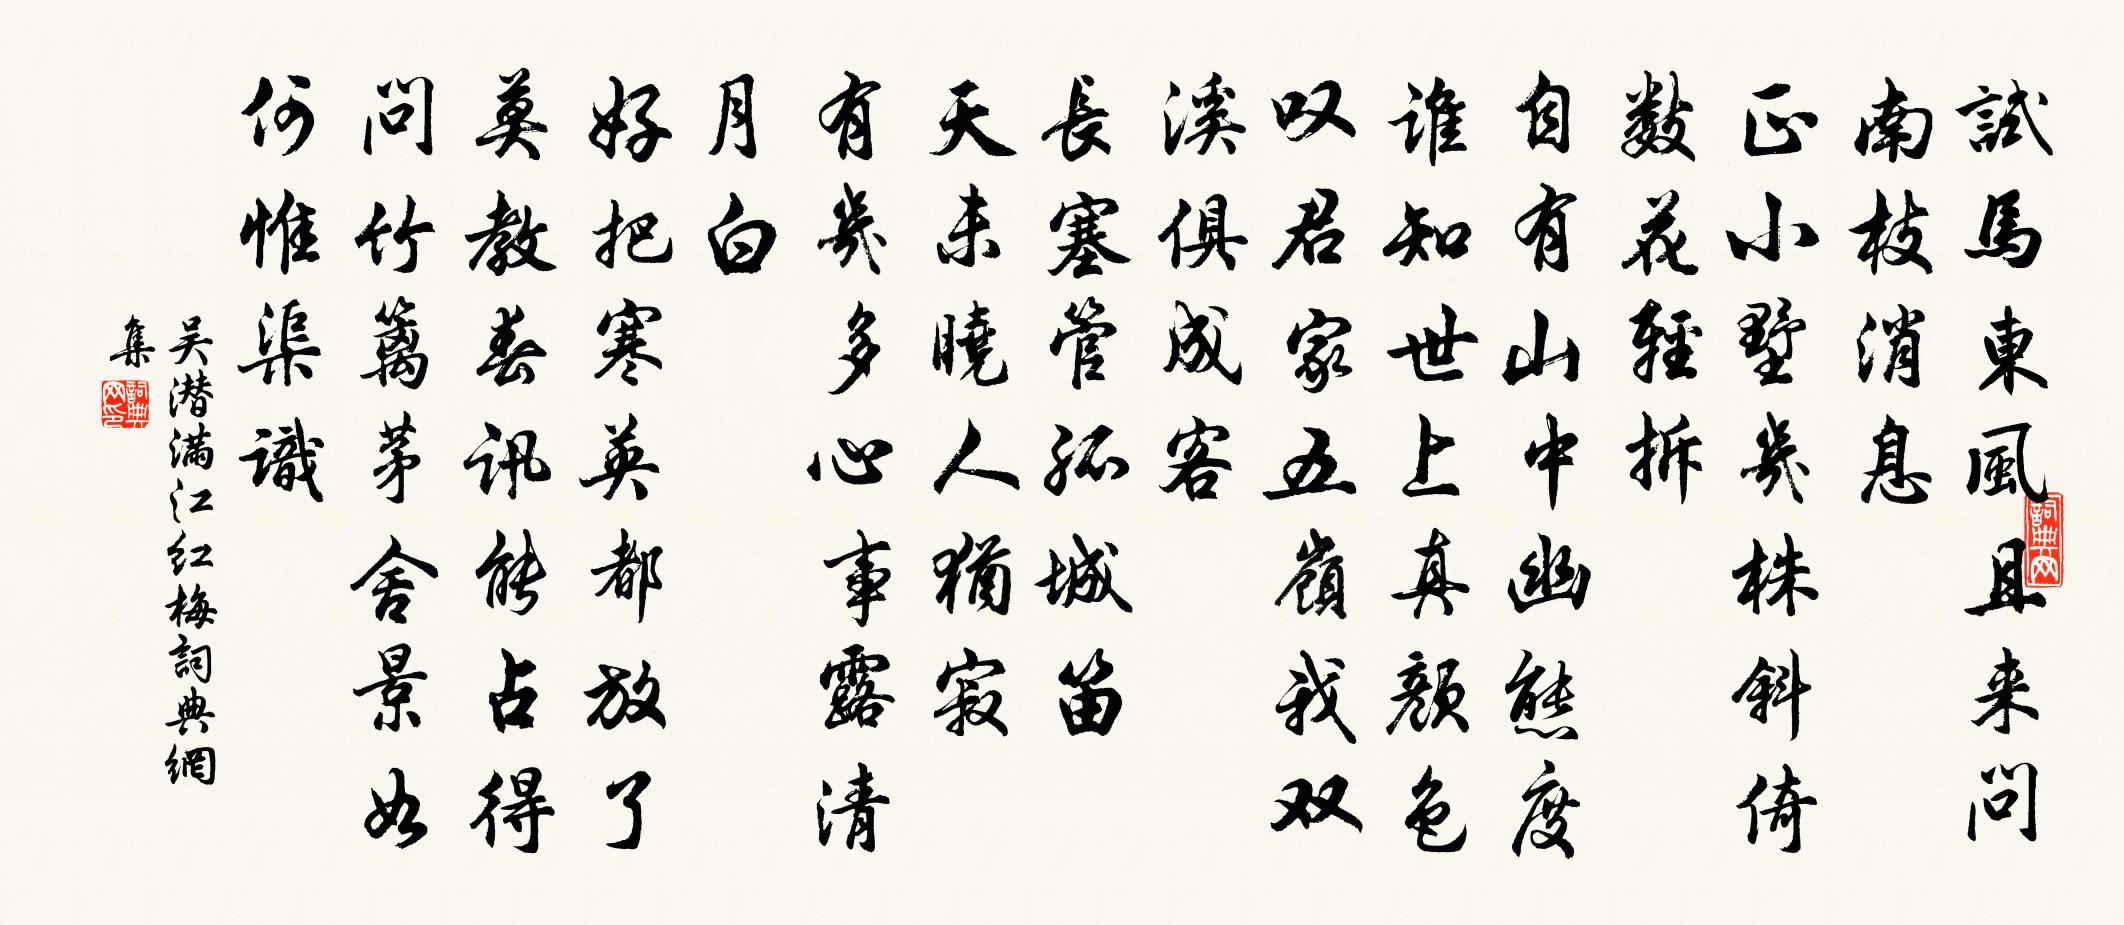 試馬東風且来問
南枝消息
正小墅幾株斜倚
数花輕拆
自有山中幽態度
谁知世上真顏色
叹君家五嶺我双
溪俱成客
長塞管孤城笛
天未曉人猶寂
有幾多心事露清
月白
好把寒英都放了
莫教春讯能占得
問竹篱茅舍景如
何惟渠識
吴潜满江红梅詞典網
集
詞典网
詞典网印